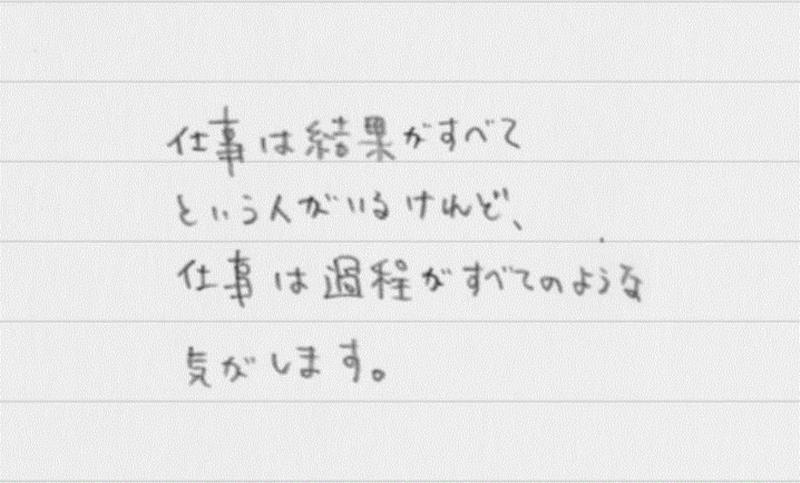 仕事は結果がすべて
という人がいるけんど、
仕事は過程がすべてのような
気がします。